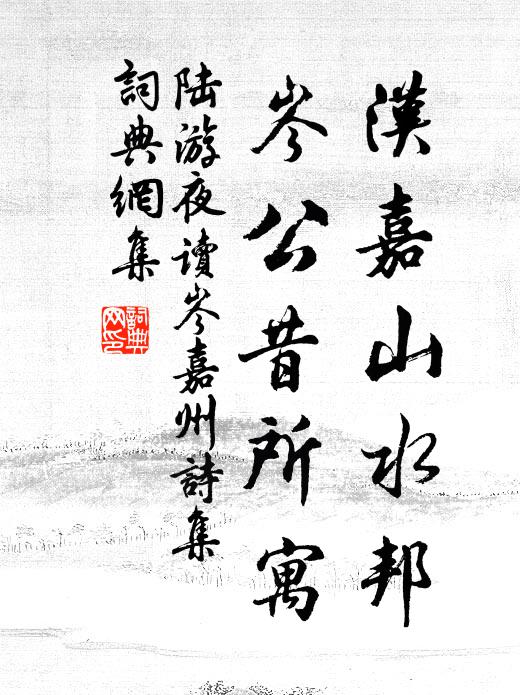 漢嘉山水邦
岑公昔所寓
陆游夜讀岑嘉州詩集
詞典網集
詞典网印